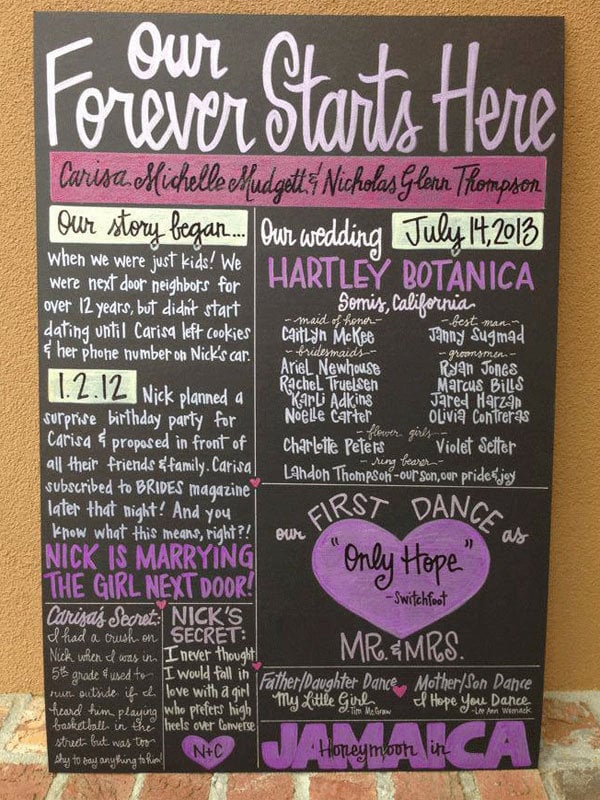 Our
Forever Starts Here
Carisa Michelle Mudgett & Nicholas Glenn Thompson
Our story began...
When we were just kids! We
were next door neighbors for
over 12 years, but didn't start
dating until Carisa left cookies
& her phone number on Nick's car.
1.2.12 Nick planned a
surprise birthday party for
Carisa & proposed in front of
all their friends & family. Carisa
subscribed to BRIDES magazine
later that night! And you
know what this means, right?!
NICK IS MARRYING
THE GIRL NEXT DOOR!
Carisa's Secret:
I had a crush on
Nick when I was in
5th grade & used to
run outside if I
heard him playing
basketball in the
street but was too
shy to say anything to him!
NICK'S
SECRET:
I never thought
I would fall in
love with a girl
who prefers high
heels over Converse
N+C
Our wedding July 14, 2013
HARTLEY BOTANICA
Somis, California
-maid of honor-
Caitlyn McKee
-bridesmaids-
Ariel Newhouse
Rachel Truelsen
Karli Adkins
Noelle Carter
-best man-
Janny Sugmad
-groomsmen-
Ryan Jones
Marcus Bills
Jared Harzan
Olivia Contreras
-flower girls-
Charlotte Peters Violet Setter
-ring bearer-
Landon Thompson-our son, our pride & joy
our FIRST DANCE as
"Only Hope"
-Switchfoot
MR. & MRS.
Father/Daughter Dance
My Little Girl
Tim McGraw
Mother/Son Dance
I Hope You Dance
-Lee Ann Womack
Honeymoon in
JAMAICA